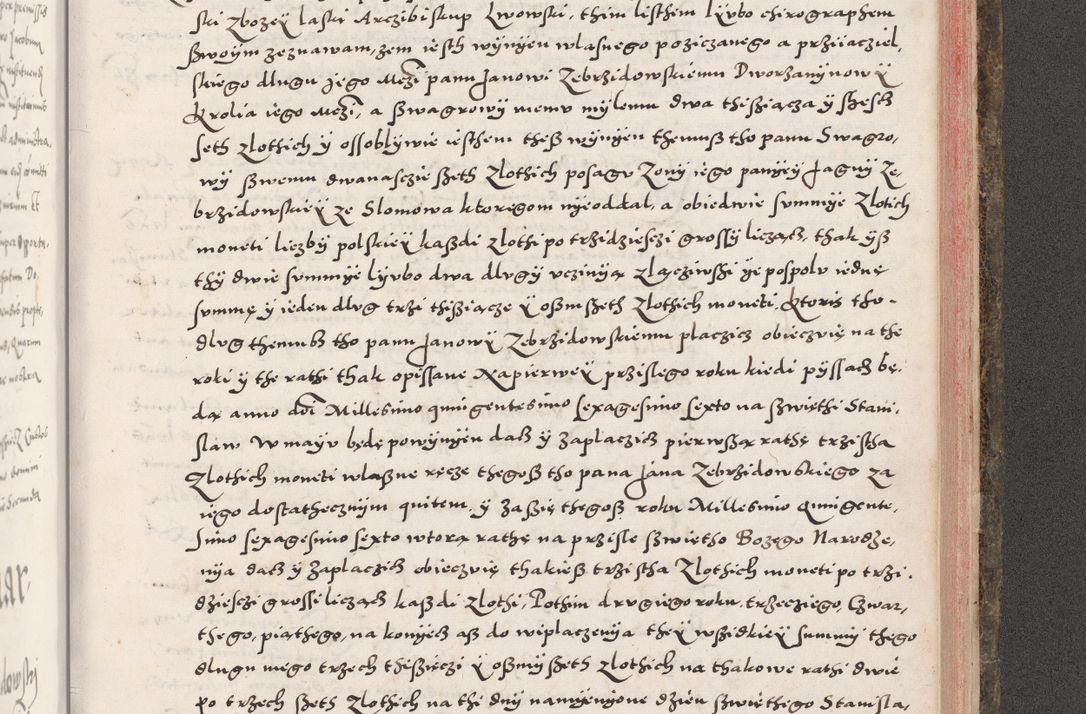 ski zbozeÿ Laski Arczibiskup Lwowski. thim listhem lÿvbo chirographem
ßwoÿm zeznawam, zem iesth wÿnÿen wlasnego poziczanego a prziiacziel,
skiego dlugu Jego Mczi panu Janowi Zebrzidowskiemu Dworzanÿnowÿ
Krolia iego Mczi, a ßwagrowÿ memv mÿlemu dwa thißiącza ÿ shescz
seth zlothich ÿ ossoblÿwie iesthem theß wÿnÿen themuß tho panu Swagro,
wÿ ßwemu dwanasczie ßeth zlothich posagv Zonÿ iego panÿeÿ Jagnÿ Ze,
brzidowskieÿ ze Slomowa ktoregom nÿeoddal, a obiedwie svmmÿe Zlotich
moneti liczbÿ polskieÿ kaßdi zlothi po trzidziesczi grossÿ licząß, thak ÿß
thÿ dwie svmmÿe lÿvbo dwa dlvgÿ vczinÿą zlącziwßi ÿe pospolv iednę
svmmę ÿ ieden dlvg trzi thißiącze ÿ oßm ßeth Zlothich moneti. Ktoris tho
dlvg themuß tho panu Janowÿ Zebrzidowskiemu placzicz obieczvię na the
roki ÿ the rathi thak opissane Napierweÿ przislego roku kiedi pÿssacz bę,
dą anno dni Millesimo quingentesimo sexagesimo sexto na ßwięthi Stani,
slaw W mayv będę powÿnÿen dacz ÿ zaplaczicz pierwßą rathę trzistha
Zlothich moneti wlaßne ręcze thegoß tho pana Jana Zebrzidowskiego za
iego dostathecznÿm quitem, ÿ zaßię thegoß roku Millesimo Quingente,
simo sexagesimo sexto wtorą rathę na przisle ßwiętho Bozęgo Narodze,
nÿa dacz ÿ Zaplaczicz obieczvię thakieß trzistha Zlothich moneti po trzi,
dziesczi grossi licząß kaßdi Zlothi, Pothim drvgiego roku, trzecziego, Czwar,
thego, piąthego, na konÿecz aß do wiplaczenÿa theÿ wßidkieÿ summÿ thego
dlugu mego trzech thißięczi ÿ oßmÿ ßeth zlothich na thakowe rathi dwie
po trzech ßeth Zlothich na thi dnÿ namÿenÿone dzien ßwięthego Stanisla,